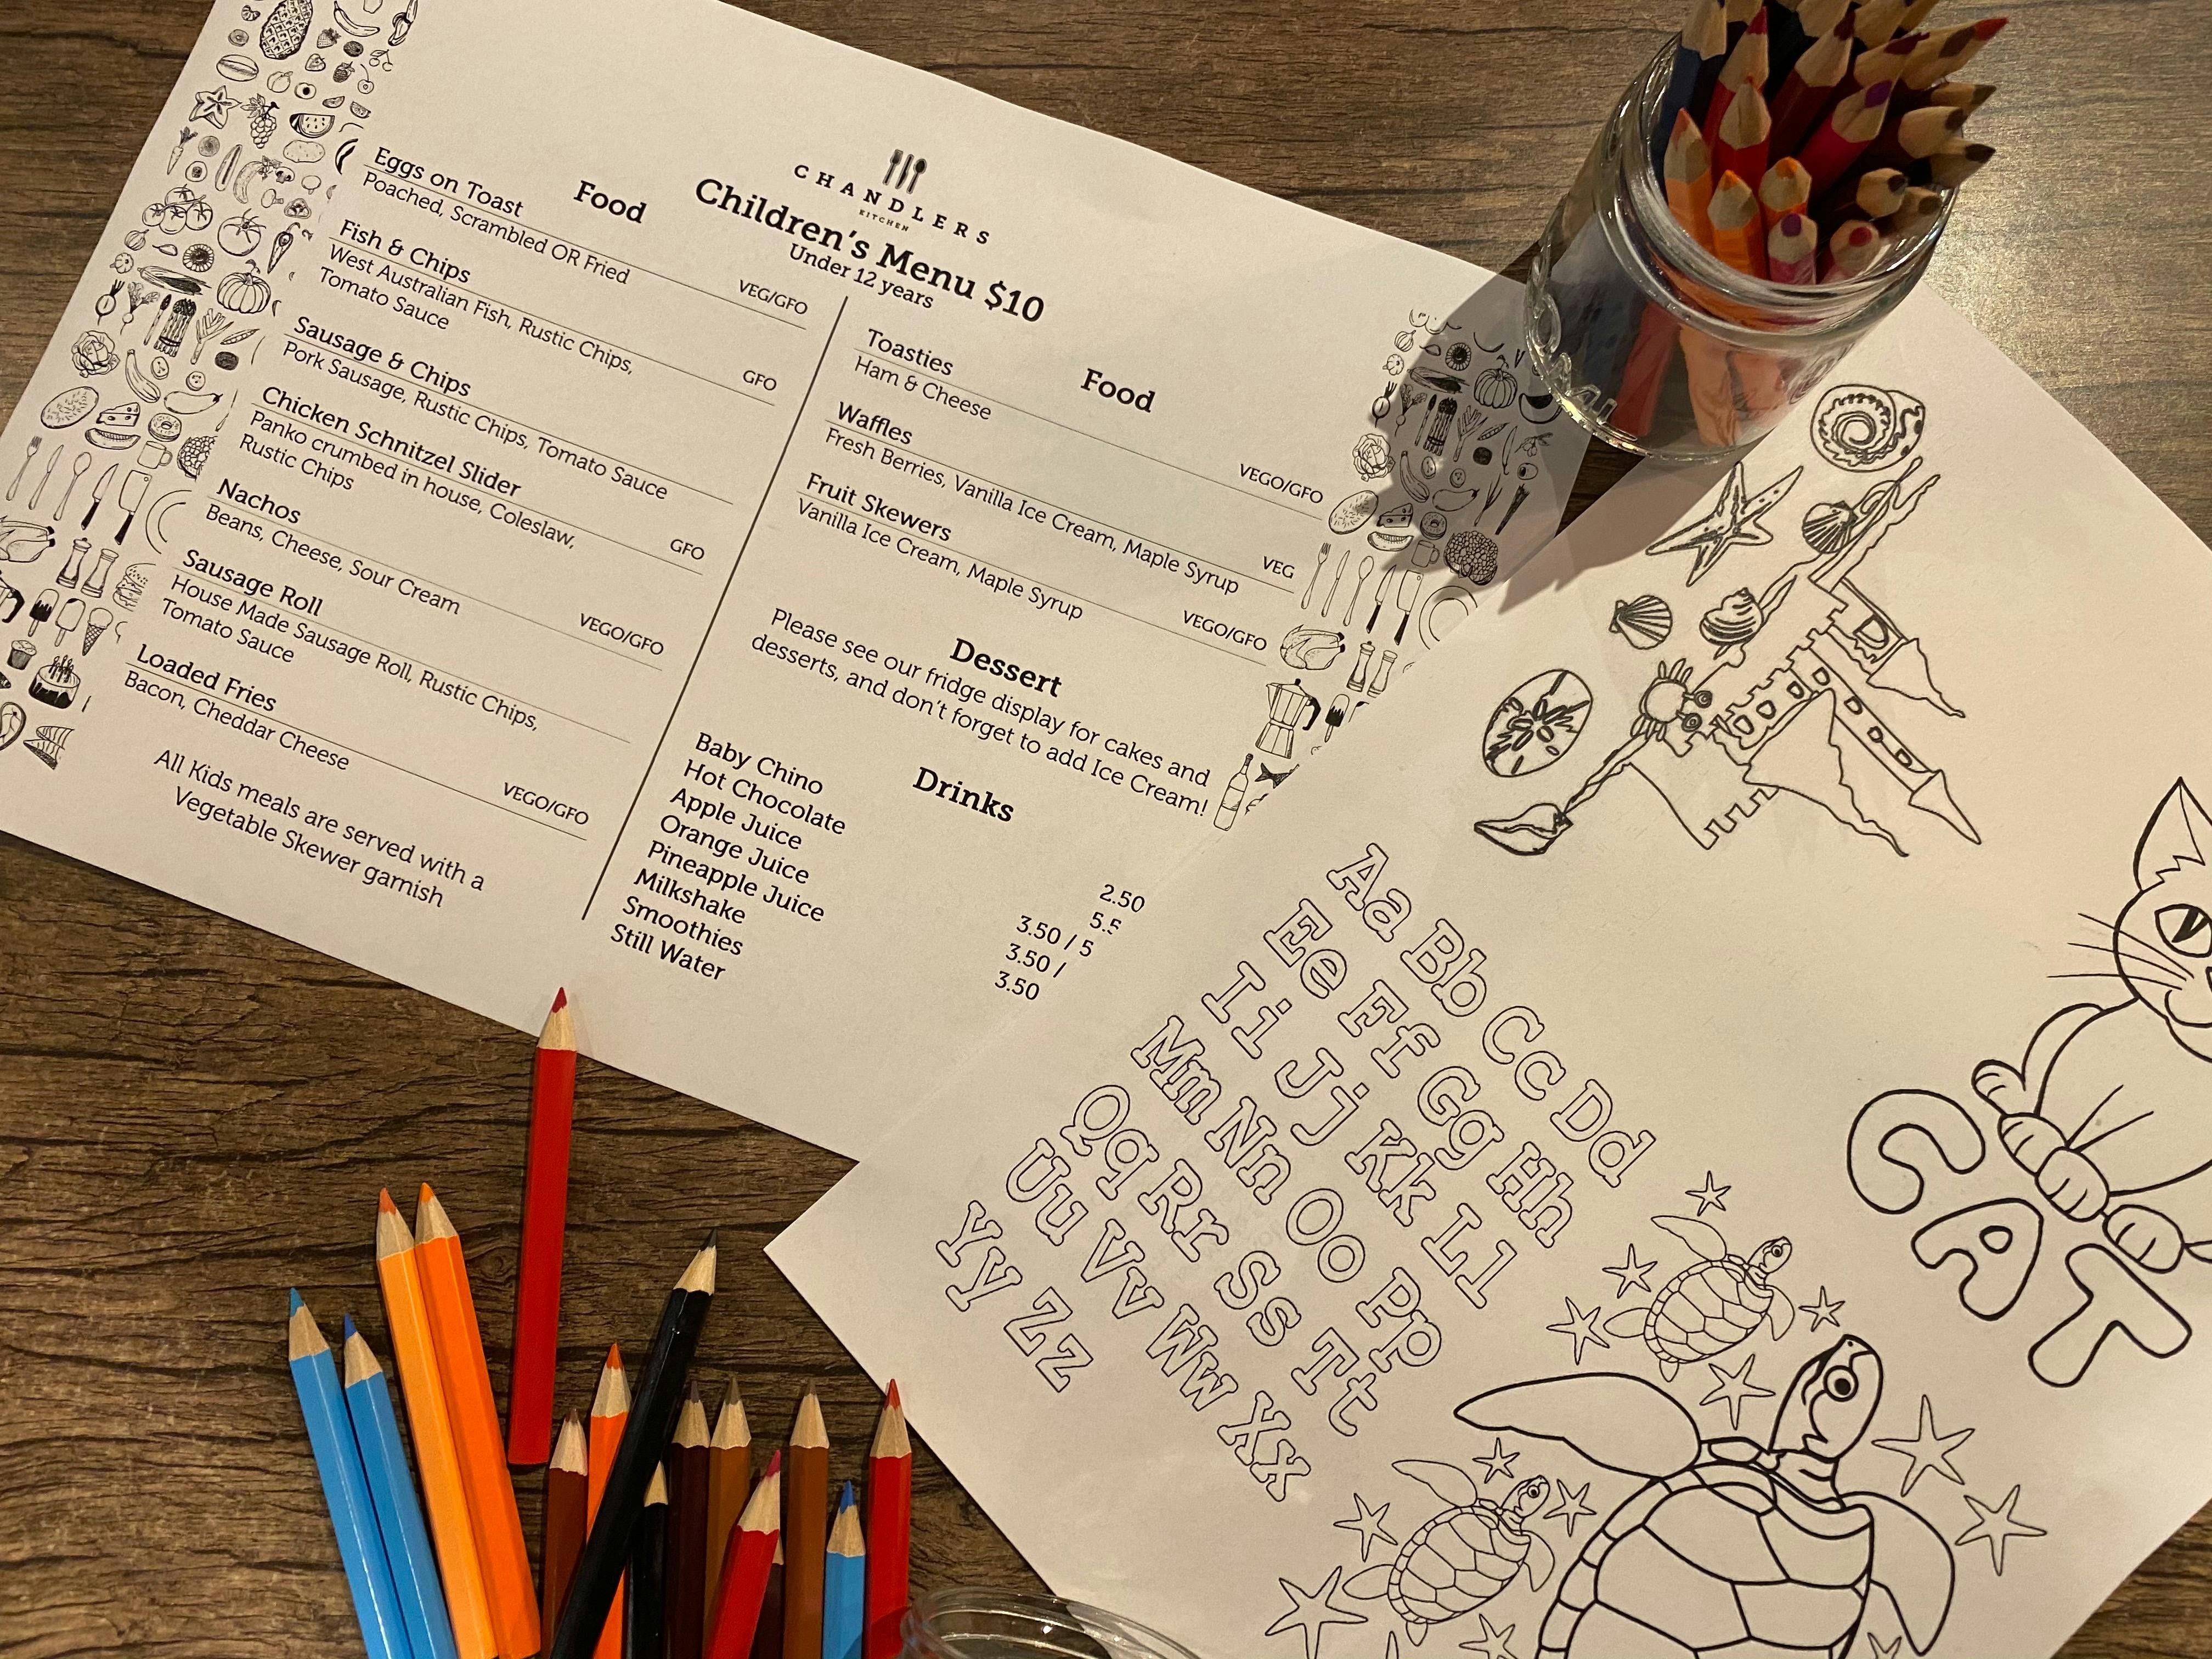 CHANDLERS
KITCHEN
Children's Menu $10
Under 12 years
Food
Eggs on Toast
Poached, Scrambled OR Fried
VEG/GFO
Fish & Chips
West Australian Fish, Rustic Chips,
Tomato Sauce
GFO
Sausage & Chips
Pork Sausage, Rustic Chips, Tomato Sauce
Chicken Schnitzel Slider
Panko crumbed in house, Coleslaw,
Rustic Chips
GFO
Nachos
Beans, Cheese, Sour Cream
VEGO/GFO
Sausage Roll
House Made Sausage Roll, Rustic Chips,
Tomato Sauce
Loaded Fries
Bacon, Cheddar Cheese
VEGO/GFO
All Kids meals are served with a
Vegetable Skewer garnish
Food
Toasties
Ham & Cheese
VEGO/GFO
Waffles
Fresh Berries, Vanilla Ice Cream, Maple Syrup
VEG
Fruit Skewers
Vanilla Ice Cream, Maple Syrup
VEGO/GFO
Dessert
Please see our fridge display for cakes and
desserts, and don't forget to add Ice Cream!
Drinks
Baby Chino
Hot Chocolate
Apple Juice
Orange Juice
Pineapple Juice
Milkshake
Smoothies
Still Water
2.50
5.5
3.50 / 5
3.50 /
3.50
Aa Bb Cc Dd
Ee Ff Gg Hh
Ii Jj Kk Ll
Mm Nn Oo Pp
Qq Rr Ss Tt
Uu Vv Ww Xx
Yy Zz
CAT